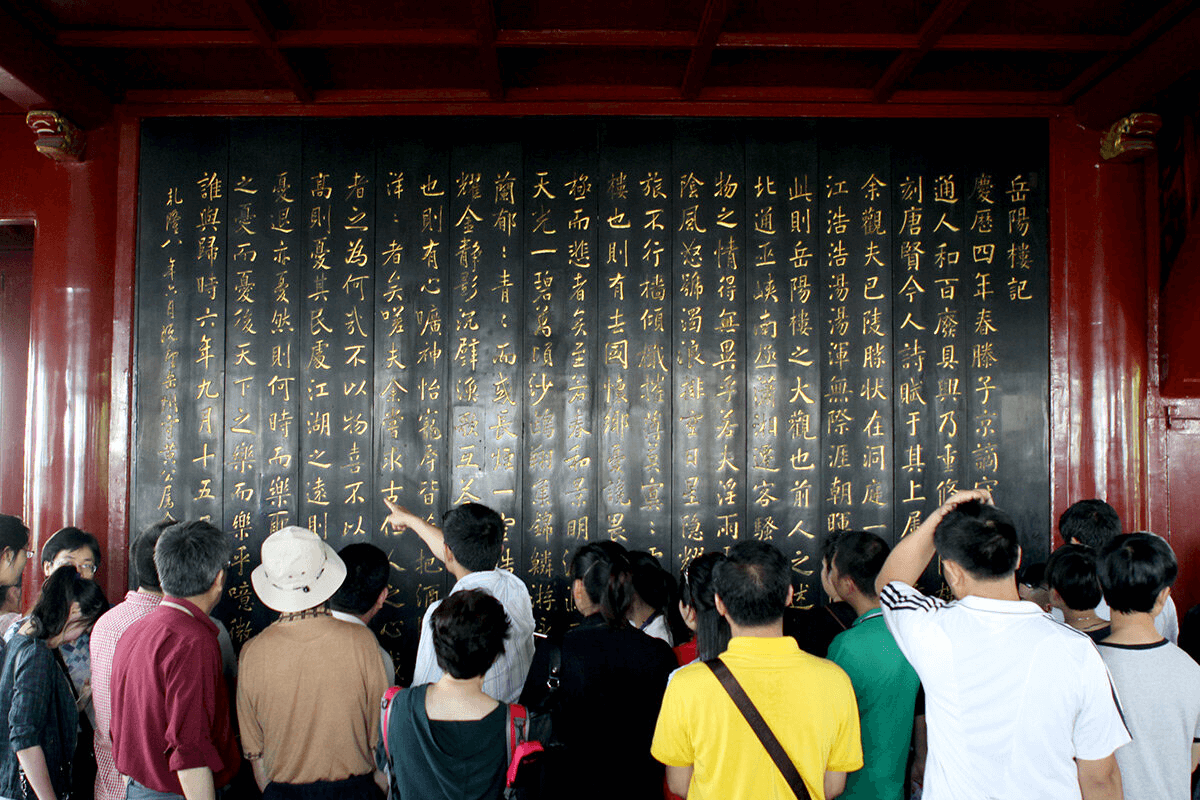 岳陽樓記
慶歷四年春滕子京謫守
通人和百廢具興乃重修
刻唐賢今人詩賦于其上屬
余觀夫巴陵勝狀在洞庭一
江浩浩湯湯渾無際涯朝暉
此則岳陽樓之大觀也前人之述
北通巫峽南極瀟湘遷客騷
物之情得無異乎若夫淫雨
陰風怒號濁浪排空日星隱耀
旅不行檣傾檝摧薄暮冥:
樓也則有去國懷鄉憂讒畏
極而悲者矣至若春和景明
天光一碧萬頃沙鷗翔集錦鱗游
蘭郁:青:而或長煙一空皓
耀金靜影沉璧漁歌互答
也則有心曠神怡寵辱皆把酒
洋:者矣嗟夫余嘗求古仁人之心
者之為何哉不以物喜不以
高則憂其民處江湖之遠則
憂退亦憂然則何時而樂耶
之憂而憂後天下之樂而樂乎噫微
誰與歸時六年九月十五
乾隆八年六月